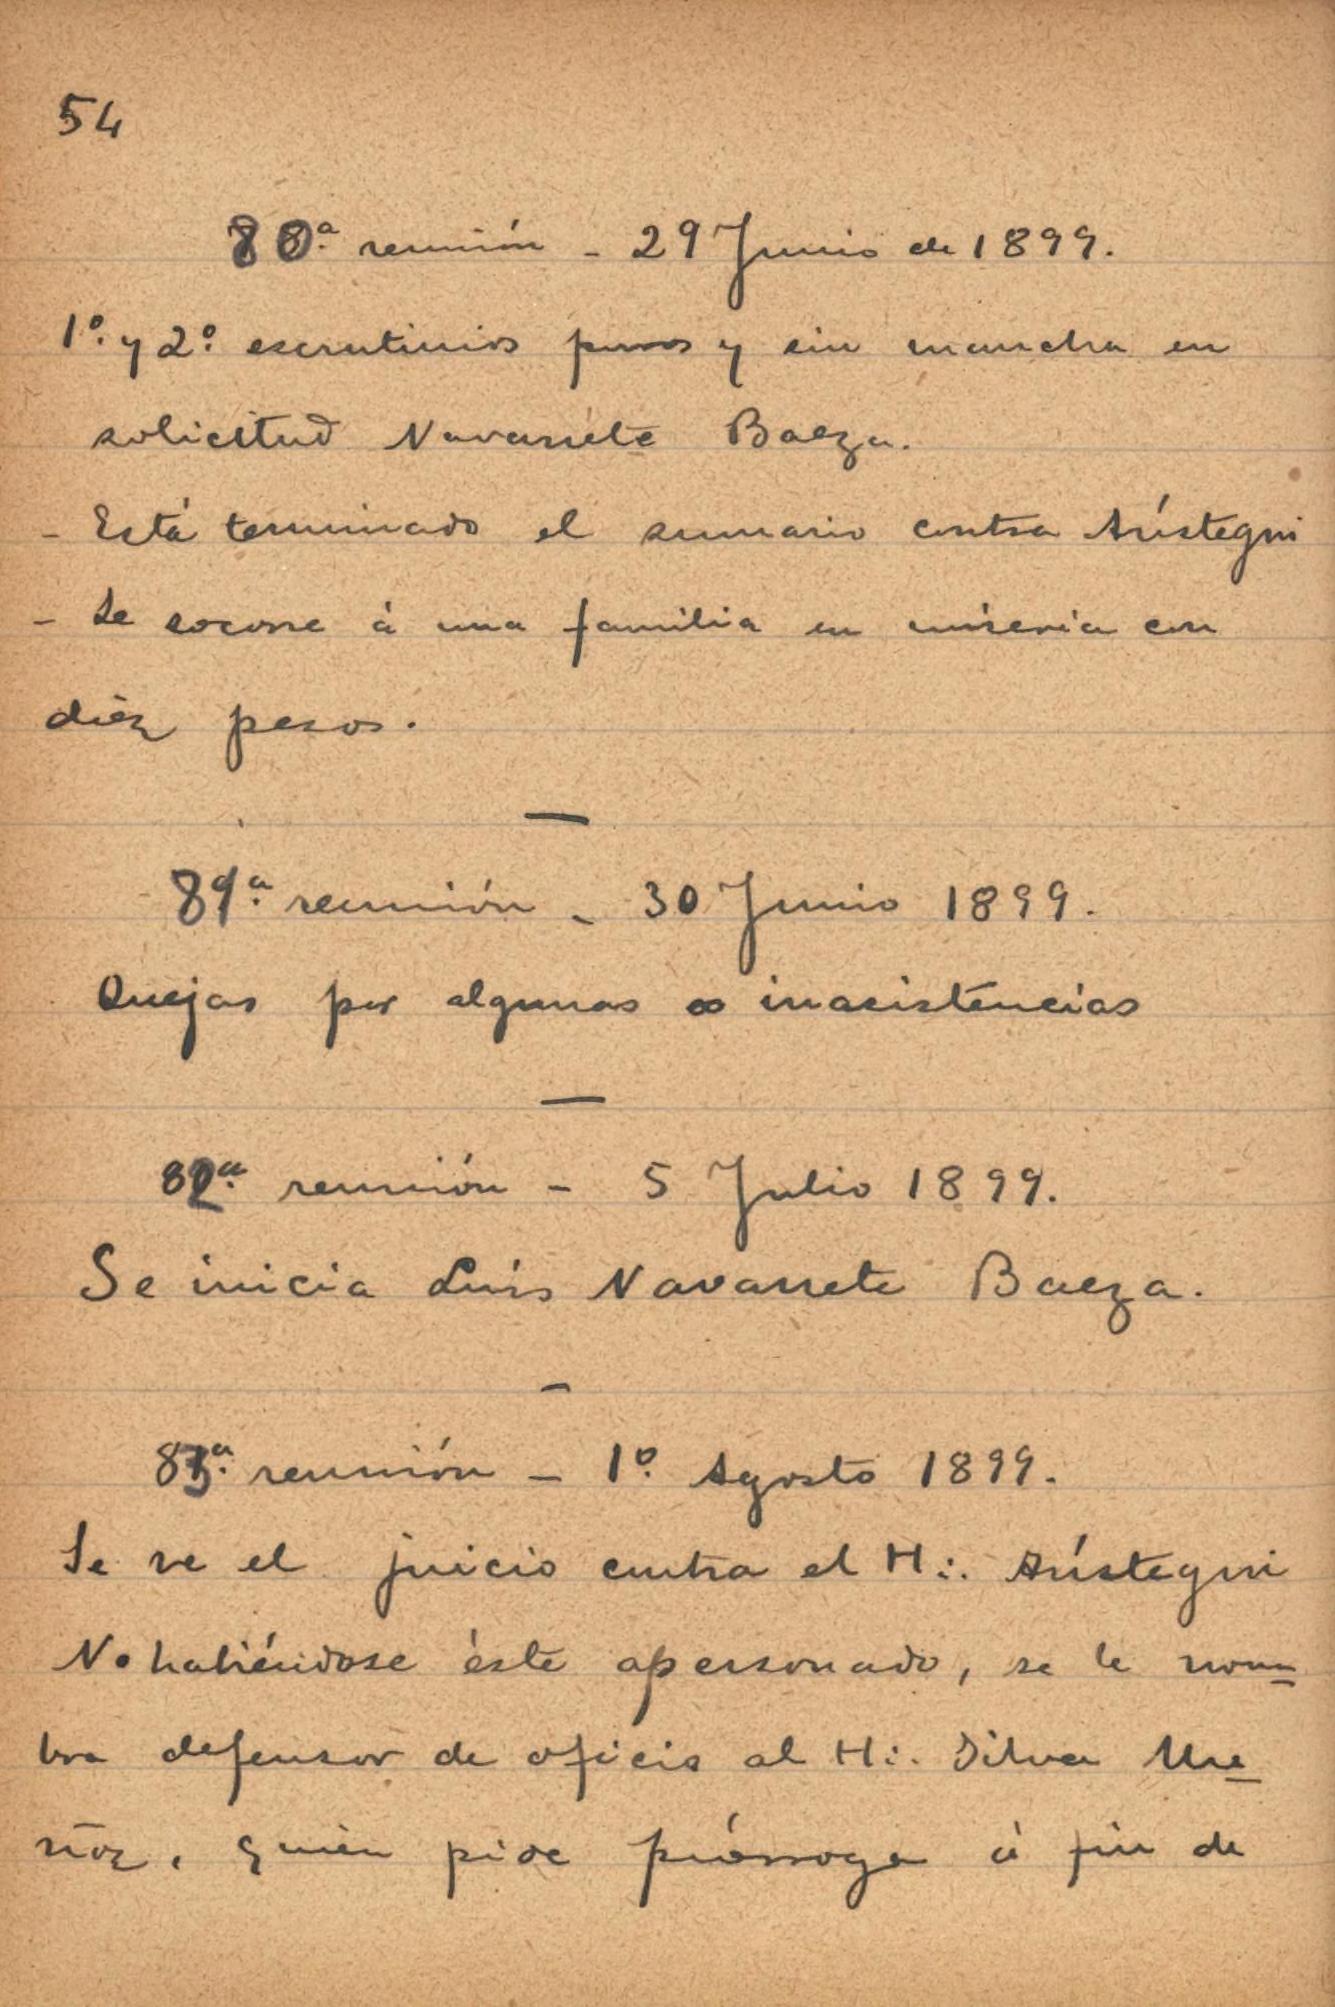 54
80ª reunión - 29 Junio de 1899.
1º. y 2º. escrutinios puros y sin mancha en
solicitud Navarrete Baeza.
- Está terminado el sumario contra Arístegui
- Se socorre á una familia en miseria con
diez pesos.
81ª. reunión - 30 Junio 1899.
Quejas por algunas inasistencias
82ª. reunión - 5 Julio 1899.
Se inicia Luis Navarrete Baeza.
83ª. reunión - 1º. Agosto 1899.
Se ve el juicio contra el H∴ Arístegui
No habiéndose éste apersonado, se le nom-
bra defensor de oficio al H∴ Silva Mu-
ñoz, quien pide prórroga á fin de